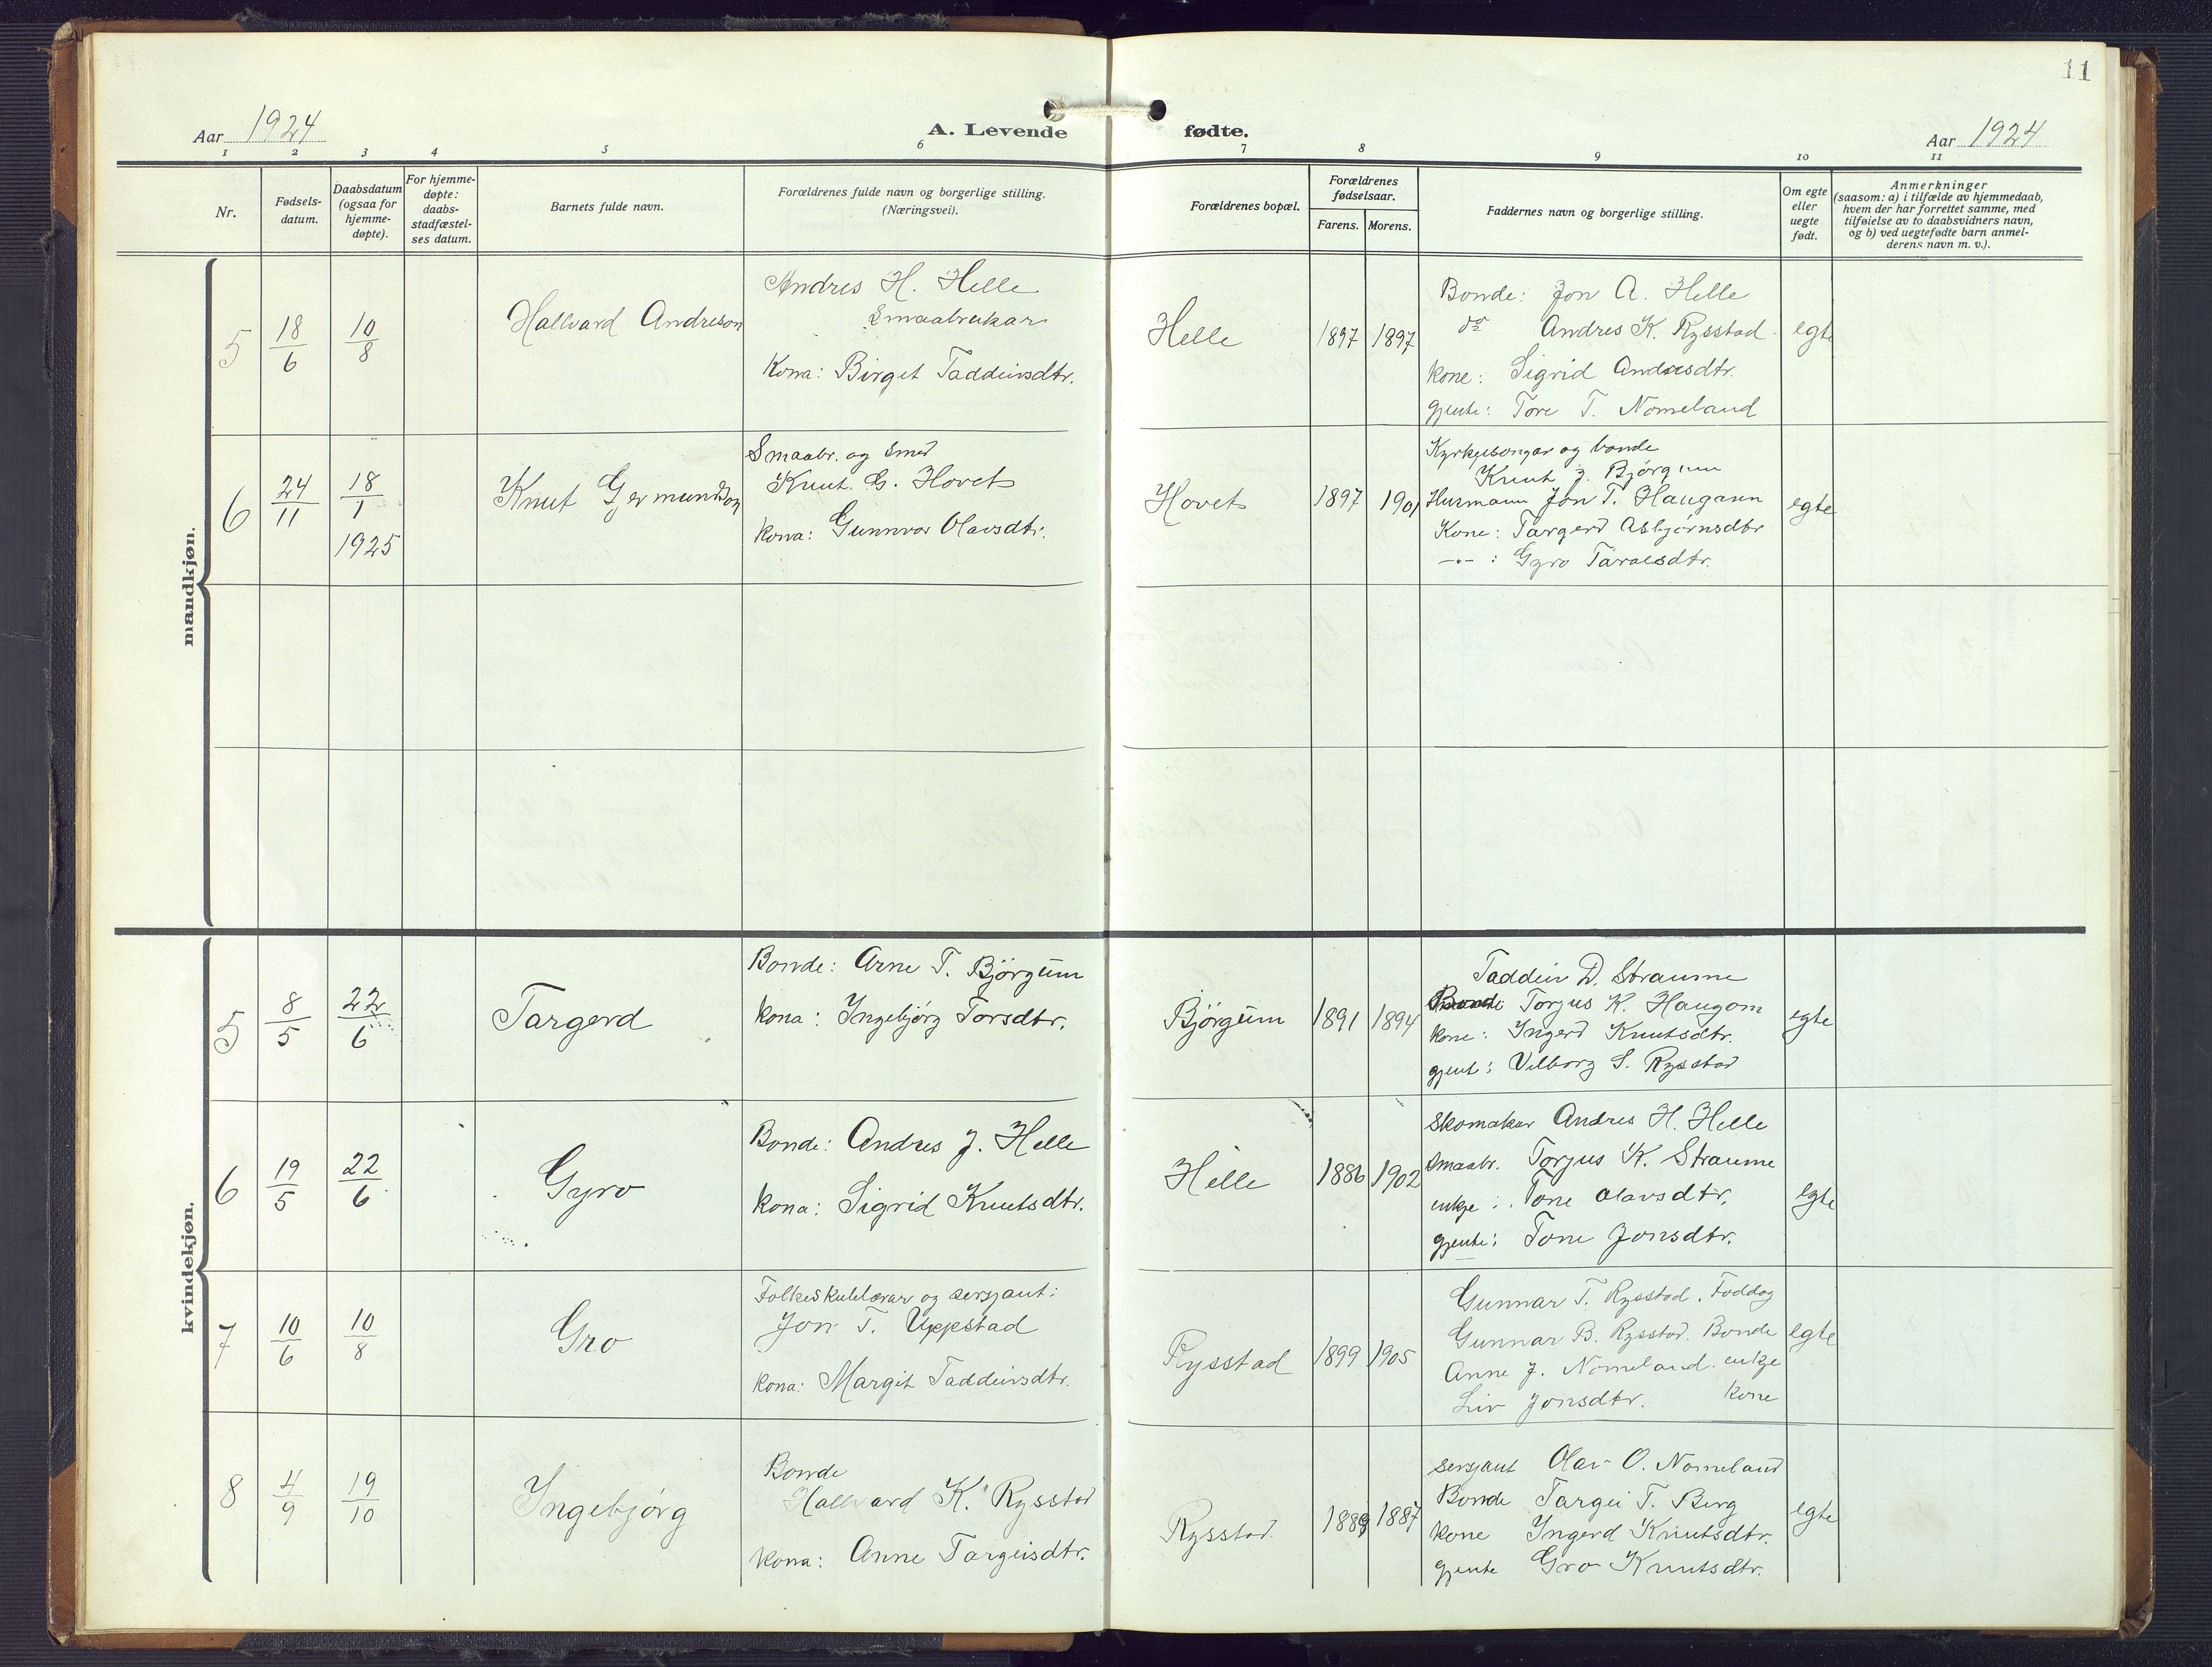 11
Aar 1924
A. Levende fødte.
Aar 1924
1 2 3 4 5 6 7 8 9 10 11
Nr.
Fødsels-
datum.
Daabsdatum
(ogsaa for
hjemme-
døpte).
For hjemme-
døpte:
daabs-
stadfæstel-
ses datum.
Barnets fulde navn.
Forældrenes fulde navn og borgerlige stilling.
(Næringsvei).
Forældrenes bopæl.
Forældrenes
fødselsaar.
Farens. Morens.
Faddernes navn og borgerlige stilling.
Om egte
eller
uegte
født.
Anmerkninger
(saasom: a) i tilfælde av hjemmedaab,
hvem der har forrettet samme, med
tilføielse av to daabsvidners navn,
og b) ved uegtefødte barn anmel-
derens navn m. v.).
mandkjøn.
5
18/6
10/8
Hallvard Andreson
Andres H. Helle
Smaabrukar
Kona: Birget Taddeivsdtr.
Helle
1897 1897
Bonde: Jon A. Helle
do Andres K. Rysstad
kone: Sigrid Andresdtr.
gjente: Tore T. Nomeland
egte
6
24/11
18/1
1925
Knut Germundson
Smaabr. og Smed
Knut. G. Hovet
kona: Gunnvor Olavsdtr.
Hovet
1897 1901
Kyrkjesongar og bonde
Knut J. Bjørgum
Husmann Jon T. Haugann
Kone: Targerd Asbjørnsdtr
-"- : Gyro Taraldsdtr.
egte
kvindekjøn.
5
8/5
22/6
Targerd
Bonde: Arne T. Bjørgum
kona: Ingebjørg Torsdtr.
Bjørgum
1891 1894
Taddeiv D. Straume
Bonde Torjus K. Haugom
kone: Ingerd Knutsdtr.
gjente: Vilborg S. Rysstad
egte
6
19/5
22/6
Gyro
Bonde: Andres J. Helle
kona: Sigrid Knutsdtr.
Helle
1886 1902
Skomakar Andres H. Helle
Smaabr. Torjus K. Straume
enkje: Tone Olavsdtr.
gjente: Tone Jonsdtr.
egte
7
10/6
10/8
Gro
Folkeskulelærar og sersjant:
Jon T. Uppstad
kona: Margit Taddeivsdtr.
Rysstad
1899 1905
Gunnar T. Rysstad. Foddog
Gunnar B. Rysstad. Bonde
Anne J. Nomeland. enkje
Liv Jonsdtr. kone
egte
8
4/9
19/10
Ingebjørg
Bonde
Hallvard K. Rysstad
kona: Anne Targeisdtr.
Rysstad.
1889 1887
sersjant Olav O. Nomeland
Bonde Targei T. Berg
kone Ingerd Knutsdtr.
gjente Gro Knutsdtr.
egte